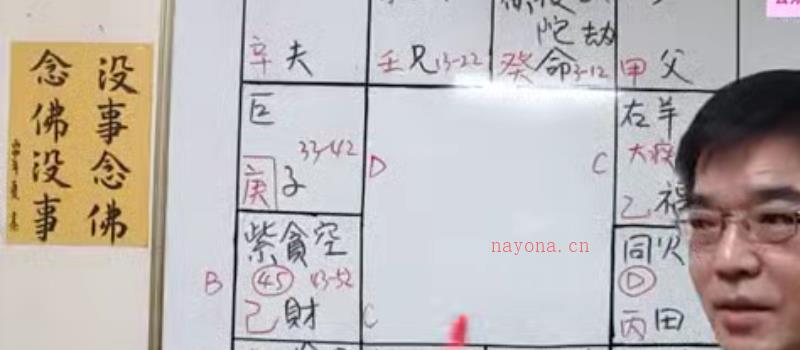 没事念佛
念佛没事
陀劫
辛夫
壬兄13-22
癸命3-12
甲父
巨
33-42
庚子
D
C
右羊
大疾
乙福
紫貪空
B
45
43-52
己財
C
nayona.cn
同火
D
丙田